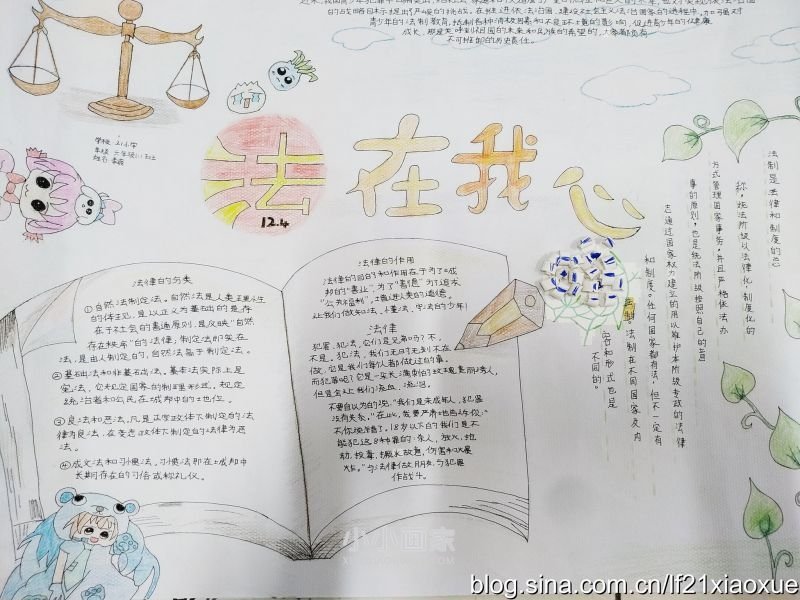 青少年的法制教育,抵制各种消极因素和不良环境的影响,促进青少年的健康
成长,那是关乎到祖国的未来和民族的希望的,大家都负有
不可推卸的历史责任。
学校:21小学
年级:三年级(1)班
法在我心
12.4
法律的分类
①自然法制定法。自然法是人类正义
的体现,是以正义为基础的是存
在于社会的普遍原则,是反映"自然
存在秩序"的法律,制定法即实在
法,是由人制定的,自然法高于制定法。
②基本法和非基本法。基本法实际上是
宪法,它规定国家的制理形式,规定
统治者和公民在城邦中的地位。
③良法和恶法,凡是正宗政体下制定的法
律为良法,在变态政体下制定的法律为恶
法。
④成文法和习惯法。习惯法即在城邦中
长期存在的习俗或称礼仪。
法律的作用
法律的目的和作用在于为了城
邦的"善业",为了"善德"为了追求
"公共福利",促进人类的道德。
让我们做知法、懂法、守法的少年!
法律
犯罪,犯法,它们是兄弟吗?不,
不是。犯法,我们无时无刻不在
做,它是我们每个人都做过的事,
而犯罪呢?它是一朵长满刺的玫瑰,美丽诱人,
但是会让我们流血、流泪。
不要自以为的说:"我们是未成年人,犯罪
没有关系。"在此,我要严肃地告诉你:
"不,你说错了。18岁以下的我们是不
能犯这8种罪的:杀人,放火,抢
劫,投毒,贩卖
法制是法律和制度的总
称,统治阶级以法律化,制度化的
方式管理国家事务,并且严格依法办
事的原则,也是统治阶级按照自己的意
志通过国家权力建立的用以维护本阶级专政的法律
和制度。任何国家都有法,但不一定有
法制在不同国家及内
容和形式也是
不同的。
小小画家
blog.sina.com.cn/lf21xiaoxue